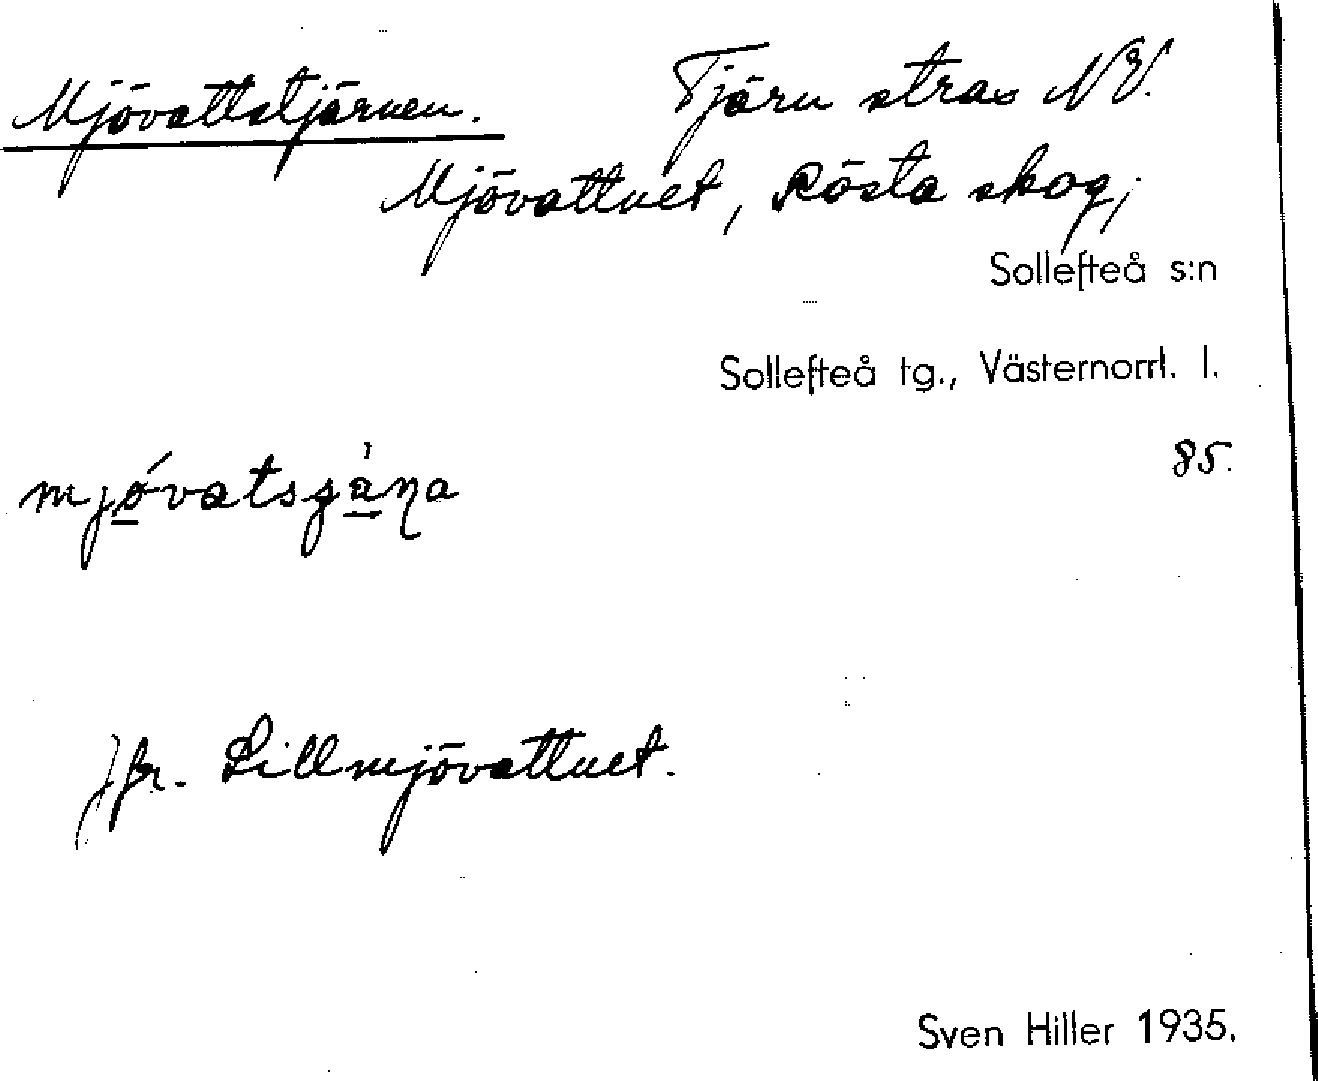 Mjövattstjärnen. Tjärn strax NV.
Mjövattnet, Rösta skog,
Sollefteå s:n
Sollefteå tg., Västernorrl. l.
85.
jfr. Lillmjövattnet.
Sven Hiller 1935.